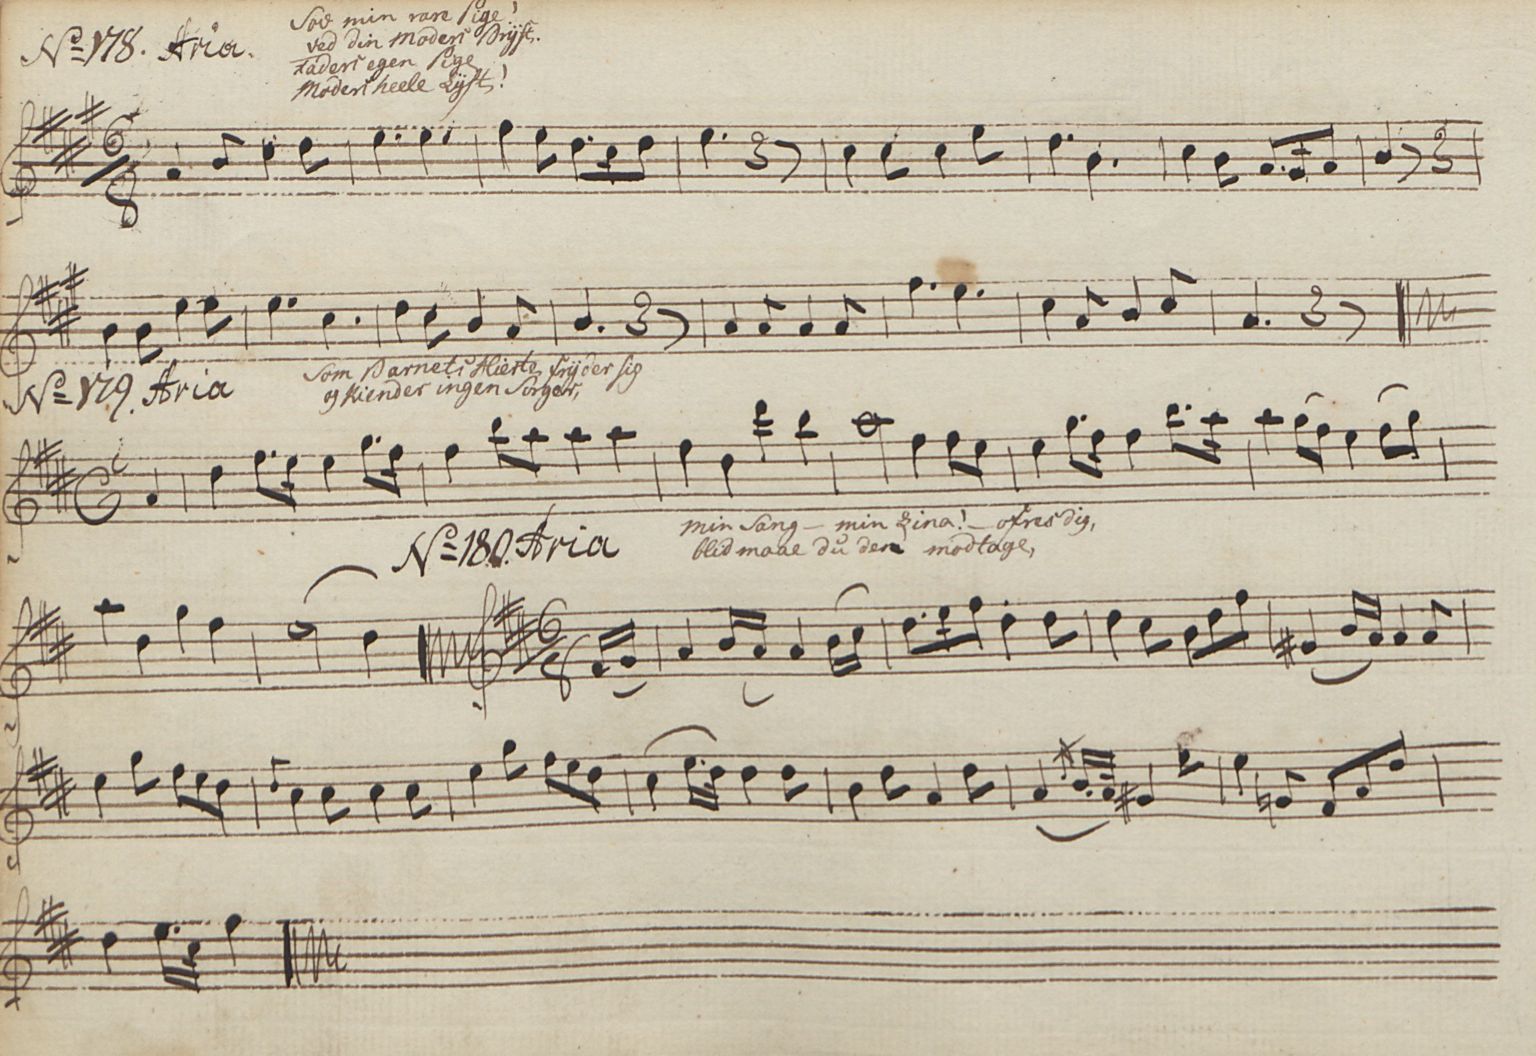 No 178. Aria.
Sov min rare Pige!
ved din Moders Bryst.
Faders egen Pige
Moders heele Lyst!
6
8
No 179. Aria
Som Barnets Hierte fryder sig
og kiender ingen Sorger,
C
No 180. Aria
min Sang – min Lina! – ofres dig,
blid maae du den modtage,
6
8